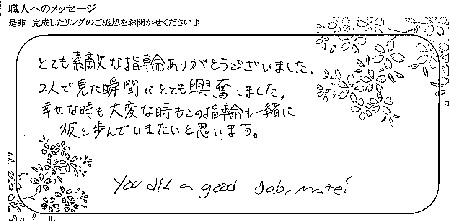 職人へのメッセージ
是非 完成したリングのご感想をお聞かせください♪
とても素敵な指輪ありがとうございました。
2人で見た瞬間にとても興奮しました。
幸せな時も大変な時もこの指輪と一緒に
仲良く歩んでいきたいと思います。
You did a good Job, mate!